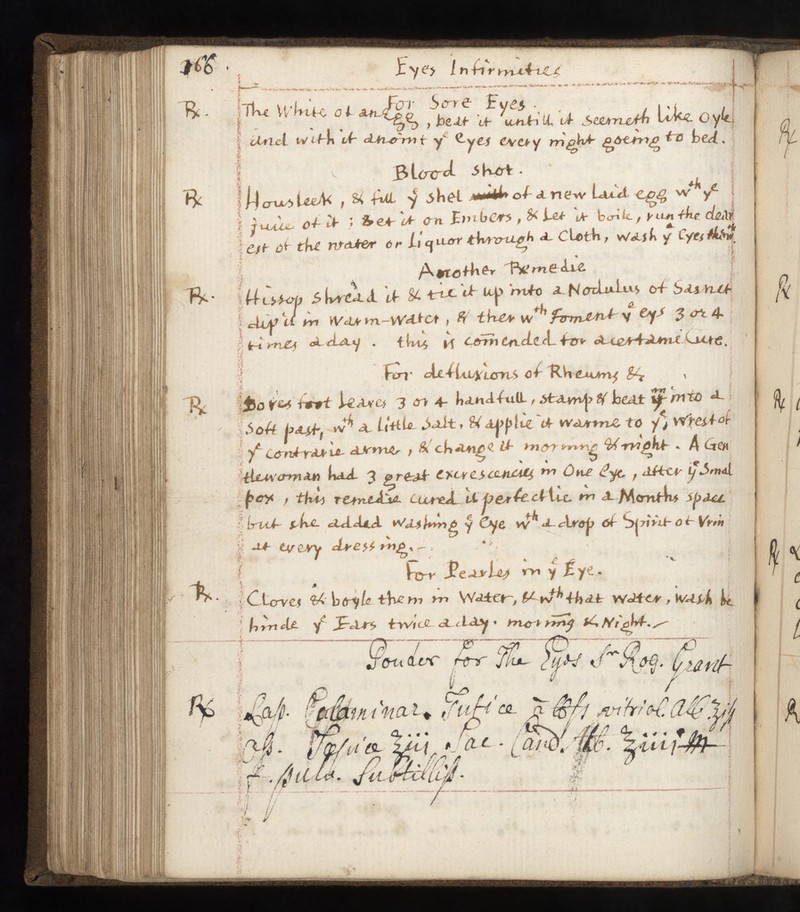 166.
Eyes Infirmities
For Sore Eyes.
℞. The White of an Egg, beat it untill it seemeth like Oyle
and with it anoint yᵉ Eyes every night goeing to bed.
Blood shot.
℞ Housleek, & fill yᵉ shel of a new laid egg wᵗʰ yᵉ
juice of it; Set it on Embers, & let it boile, run the clear
est of the water or liquor through a Cloth, wash yᵉ Eyes
Another Remedie
℞. Hissop shread it & tie it up into a Nodulus of Sasnet
dip it in warm-water, & then wᵗʰ foment yᵉ eys 3 or 4
times a day. this is com̄ended for a certaine Cure.
For defluxions of Rheums &c
℞ Doves foot leaves 3 or 4 handfull, stamp & beat yᵐ into a
Soft past, wᵗʰ a little Salt, & applie it warme to yᵉ wrest of
yᵉ contrarie arme, & change it morning & night. A Gen
tlewoman had 3 great excrescencies in One Eye, after yᵉ Smal
pox, this remedie cured it perfectlie in a Months space
but she added washing yᵉ Eye wᵗʰ a drop of Spirit of Vrin
at every dressing.
For Pearles in yᵉ Eye.
℞. Cloves & boyle them in Water, & wᵗʰ that water, wash be
hinde yᵉ Ears twice a day. morning & Night.
Pouder for The Eyes Sʳ Rog. Grant
℞ Lap. Calaminar. Tutice vitriol. alb
Sac. Cand. Alb.
f. pulv. Subtilliss.